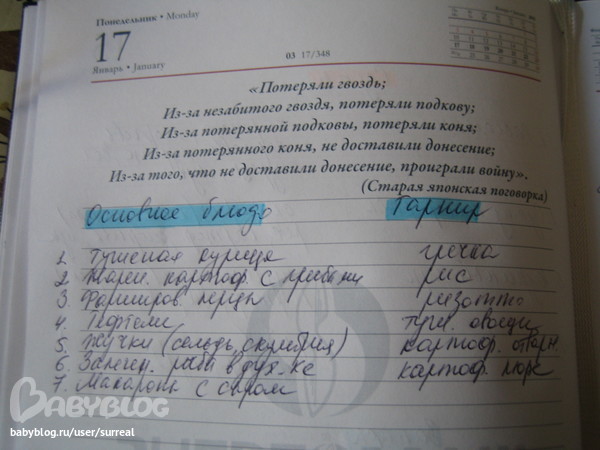 Понедельник • Monday
17
Январь • January
03 17/348
«Потеряли гвоздь;
Из-за незабитого гвоздя, потеряли подкову;
Из-за потерянной подковы, потеряли коня;
Из-за потерянного коня, не доставили донесение;
Из-за того, что не доставили донесение, проиграли войну».
(Старая японская поговорка)
Основное блюдо Гарнир
1. Тушеная курица гречка
2. Жарен. картоф. с грибами рис
3. Фарширов. перцы ризотто
4. Тефтели туш. овощи
5. (сельдь, скумбрия) картоф. отварн.
6. Запечен. рыба в дух-ке картоф. пюре
7. Макароны с сыром
BABYBLOG
babyblog.ru/user/surreal